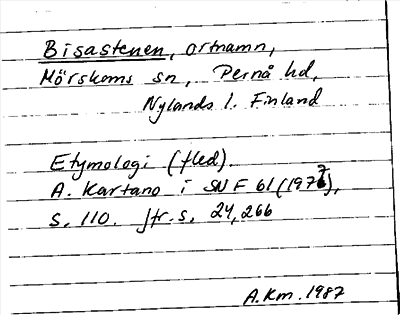 Bisastenen, ortnamn,
Mörskoms sn, Pernå hd,
Nylands l. Finland
Etymologi (fled).
A. Kartano i SNF 61 (1977),
s. 110. Jfr. s. 24, 266
A.Km. 1987